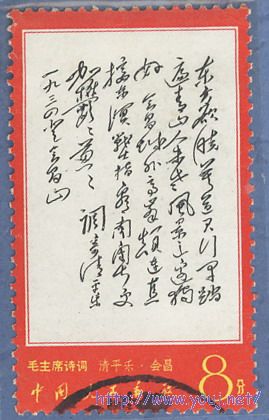 东方欲晓莫道君行早踏
遍青山人未老风景这边独
好会昌城外高峰颠连直
接东溟战士指看南粤更
加郁々葱々 调寄清平乐
一九三四年登会昌山
毛主席诗词 清平乐·会昌
中国人民邮政 8分